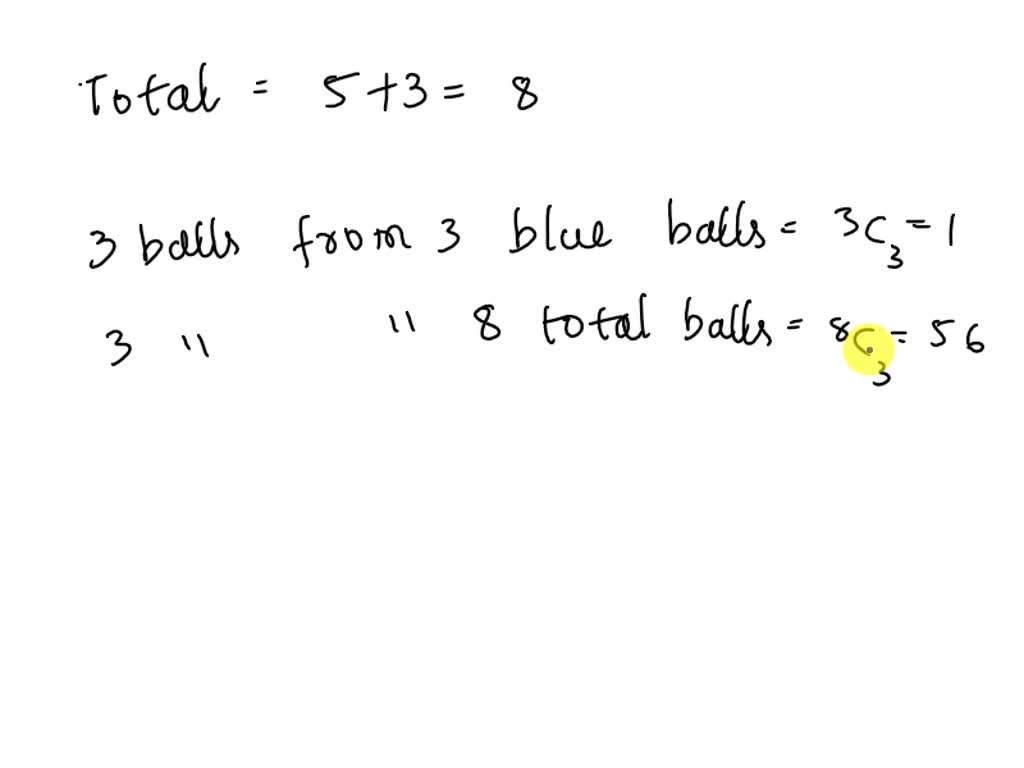 Total = 5+3 = 8
3 balls from 3 blue balls = 3C₃ = 1
3 " " 8 total balls = 8C₃ = 56